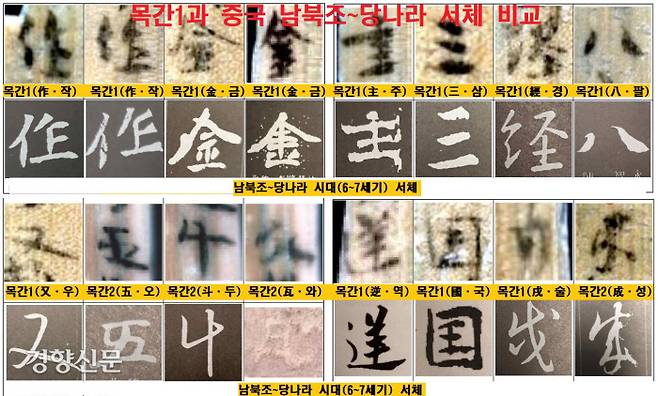 목간1과 중국 남북조~당나라 서체 비교
목간1(作·작) 목간1(作·작) 목간1(金·금) 목간1(金·금) 목간1(主·주) 목간1(三·삼) 목간1(經·경) 목간1(八·팔)
作 作 金 金 主 三 经 八
남북조~당나라 시대(6~7세기) 서체
목간1(又·우) 목간2(五·오) 목간2(斗·두) 목간2(瓦·와) 목간1(逆·역) 목간1(國·국) 목간1(戌·술) 목간2(成·성)
경향신문
남북조~당나라 시대(6~7세기) 서체